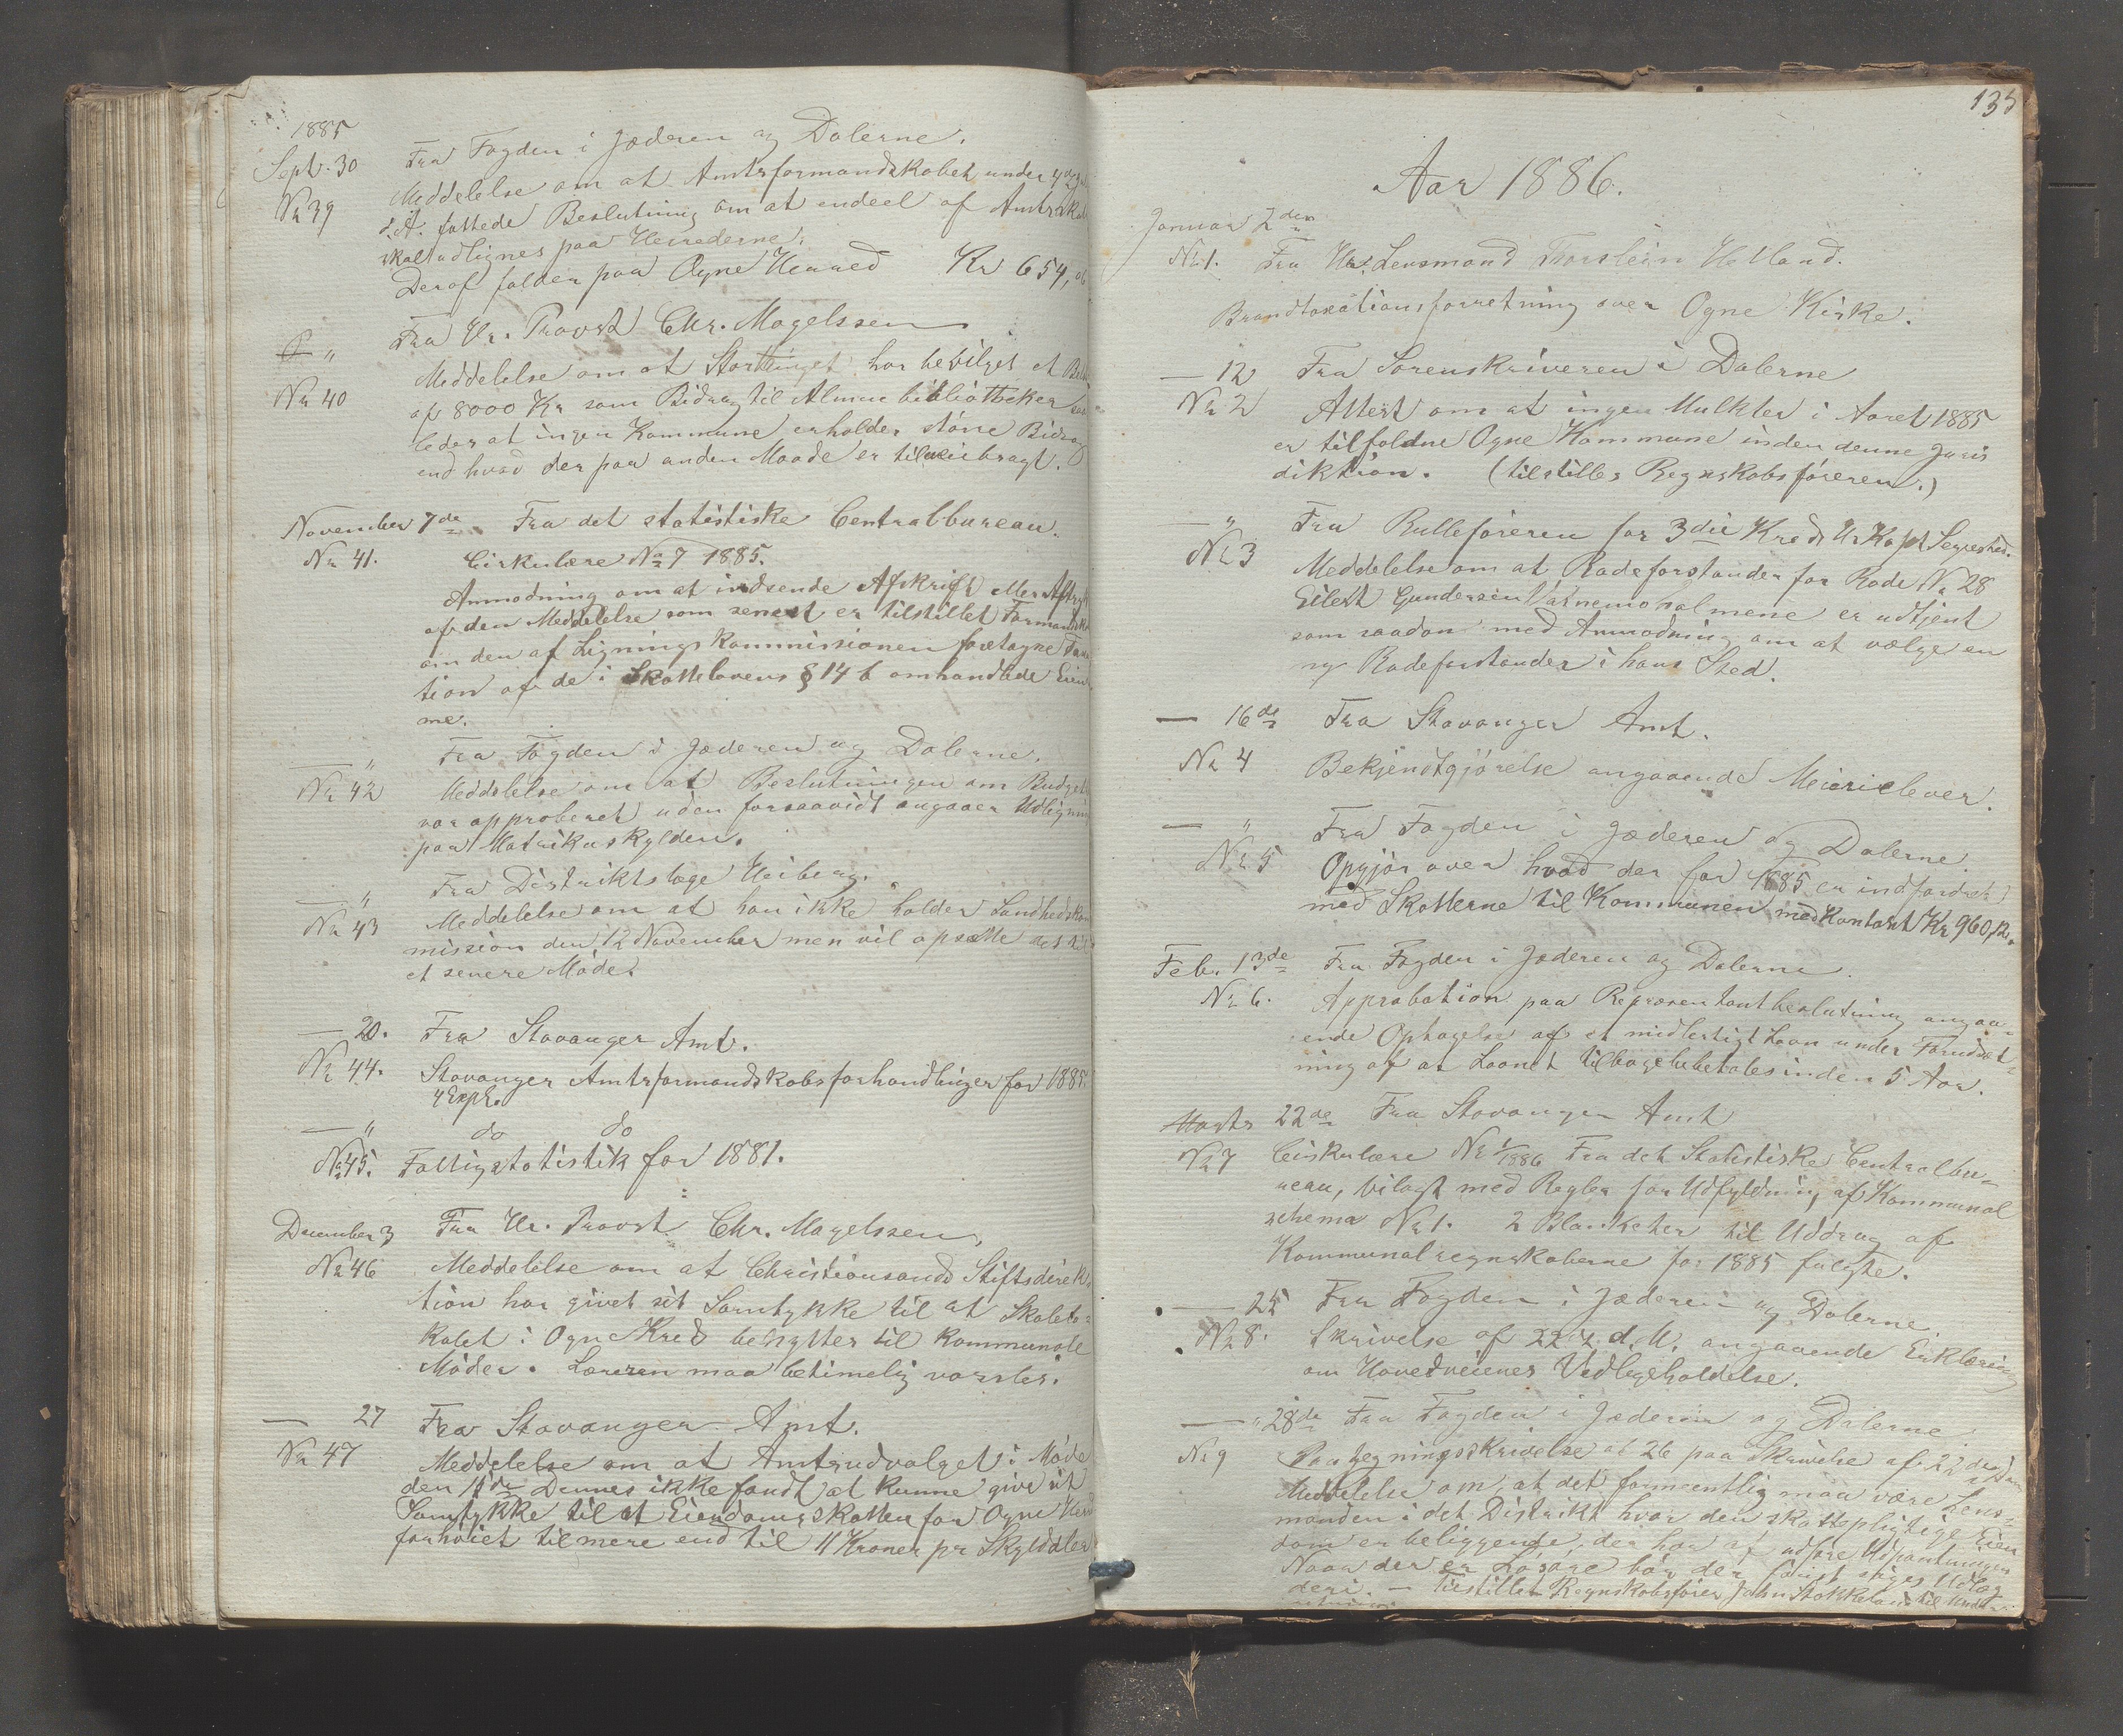 1885
Sept. 30 Fra Fogden i Jæderen og Dalerne.
Meddelelse om at Amtsformandskabet under 4de
No 39 d. A. fattede Beslutning om at endeel af
skal udlignes paa Herrederne.
Deraf falder paa Ogne Herred Kr 654,
" Fra Hr. Provst Chr. Magelssen
Meddelelse om at Storthinget har bevilget et
No 40 af 8000 Kr som Bidrag til Almue bibliotheker
ledes at ingen Kommune erholder större Bidrag
end hvad der paa anden Maade er tilveiebragt.
November 7de Fra det statistiske Centralbureau.
No 41. Cirkulære No 7 1885.
Anmodning om at indsende Afskrift eller
af den Meddelelse som senest er tilstillet
om den af Ligningskommissionen foretagne
tion af de i Skattelovens § 14 b omhandlede
me.
— " Fra Fogden i Jæderen og Dalerne.
No 42 Meddelelse om at Beslutningen om
var approberet uden forsaavidt angaaer
paa Matrikuskylden.
— " Fra Distriktslæge Heiberg.
No 43 Meddelelse om at han ikke holder
mission den 12 November men vil opsætte det til
et senere Möde.
— 20. Fra Stavanger Amt.
No 44. Stavanger Amtsformandskabsforhandlinger for 1885.
4 Expl.
— " do do
No 45. Fattigstatistik for 1881.
December 3 Fra Hr. Provst Chr. Magelssen,
No 46 Meddelelse om at Christiansands Stiftsdirek-
tion har givet sit Samtykke til at Skolelo-
kalet i Ogne Kreds benyttes til kommunale
Möder. Læreren maa betimelig varsles.
— 27 Fra Stavanger Amt.
No 47 Meddelelse om at Amtsudvalget i Möde
den 11de Dennes ikke fandt at kunne give sit
Samtykke til at Eiendomsskatten for Ogne
forhöiet til mere end til 11 Kroner pr Skylddaler
135
Aar 1886.
Januar 2den
No 1. Fra Hr. Lensmand Thorstein Hetland.
Brandtaxationsforretning over Ogne Kirke.
— 12 Fra Sorenskriveren i Dalerne
No 2 Attest om at ingen Mulkter i Aaret 1885
er tilfaldne Ogne Kommune inden denne Juris
diktion. (tilstilles Regnskabsföreren.)
— " Fra Rulleföreren for 3die Kreds Hr Kapt
No 3 Meddelelse om at Rodeforstander for Rode No 28
Eilert Gundersen er udtjent
som saadan med Anmodning om at vælge en
ny Rodeforstander i hans Sted.
— 16de Fra Stavanger Amt.
No 4 Bekjendtgjörelse angaaende Meierielever.
— " Fra Fogden i Jæderen og Dalerne.
No 5 Opgjör over hvad der for 1885 er indfordret
med Skatterne til Kommunen med Kontant Kr 960,12.
Feb. 13de Fra Fogden i Jæderen og Dalerne.
No 6. Approbation paa Repræsentantbeslutning angaa-
ende Optagelse af et midlertigt Laan under Forudsæt-
ning af at Laanet tilbagebetales inden 5 Aar.
Marts 22de Fra Stavanger Amt
No 7 Cirkulære No 1/1886 Fra det Statistiske Centralbu-
reau, bilagt med Regler for Udfyldning af Kommunal
schema No 1. 2 Blanketter til Uddrag af
Kommunalregnskaberne for 1885 fulgte.
— 25 Fra Fogden i Jæderen og Dalerne.
No 8. Skrivelse af 22de d. M. angaaende Erklæring
om Hovedveienes Vedligeholdelse.
— " 28de Fra Fogden i Jæderen og Dalerne.
No 9 Paategningsskrivelse af 26 paa Skrivelse af 22de
Meddelelse om, at det formentlig maa være Lens-
manden i det Distrikt hvor den skattepligtige Eien
dom er beliggende, der har at udföre Udpantningen
Naar der er Lösöre bör der först söges Udlæg
deri. — Tilstillet Regnskabsförer John Stokkeland til